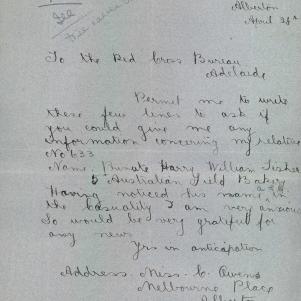 Alberton
April 28th
To the Red Cross Bureau
Adelaide
Permit me to write
these few lines to ask if
you could give me any
Information concerning my relative
No 633
Name, Private Harry William Fisher
5 Australian Field Bakery
Having noticed his name
in the Casuality I am very anxious
So would be very grateful for
any news
Yrs in anticipation
Address. Miss. C. Owens
Melbourne Place
Alberton